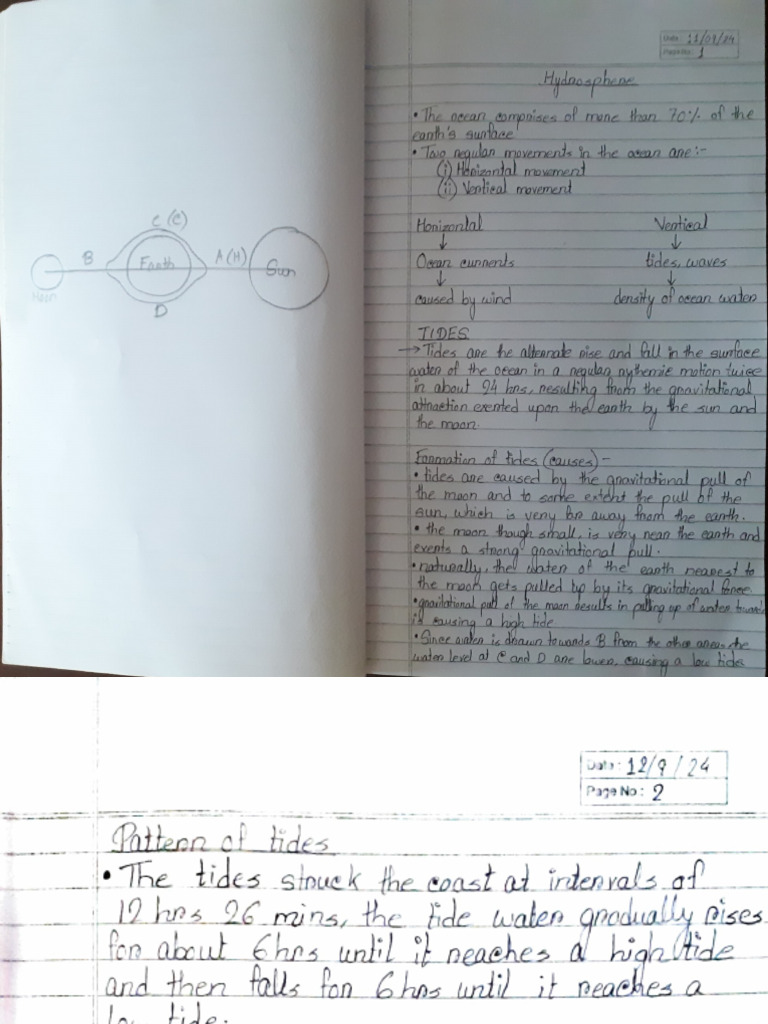 C (C)
B
Earth
A (H)
Sun
Moon
D
Date: 11/09/24
Page No: 1
Hydrosphere
• The ocean comprises of more than 70% of the
earth's surface
• Two regular movements in the ocean are:-
(i) Horizontal movement
(ii) Vertical movement
Horizontal Vertical
↓ ↓
Ocean currents tides, waves
↓ ↓
caused by wind density of ocean water
TIDES
→ Tides are the alternate rise and fall in the surface
water of the ocean in a regular rythemic motion twice
in about 24 hrs, resulting from the gravitational
attraction exerted upon the earth by the sun and
the moon.
Formation of tides (causes) -
• tides are caused by the gravitational pull of
the moon and to some extent the pull of the
sun, which is very far away from the earth.
• the moon though small, is very near the earth and
exerts a strong gravitational pull.
• naturally, the water of the earth nearest to
the moon gets pulled up by its gravitational force
• gravitational pull of the moon results in pulling up of water towards
it causing a high tide
• Since water is drawn towards B from the other areas the
water level at C and D are lower, causing a low tides
Date: 12/9/24
Page No: 2
Pattern of tides
• The tides struck the coast at intervals of
12 hrs 26 mins, the tide water gradually rises
for about 6 hrs until it reaches a high tide
and then falls for 6 hrs until it reaches a
low tide.